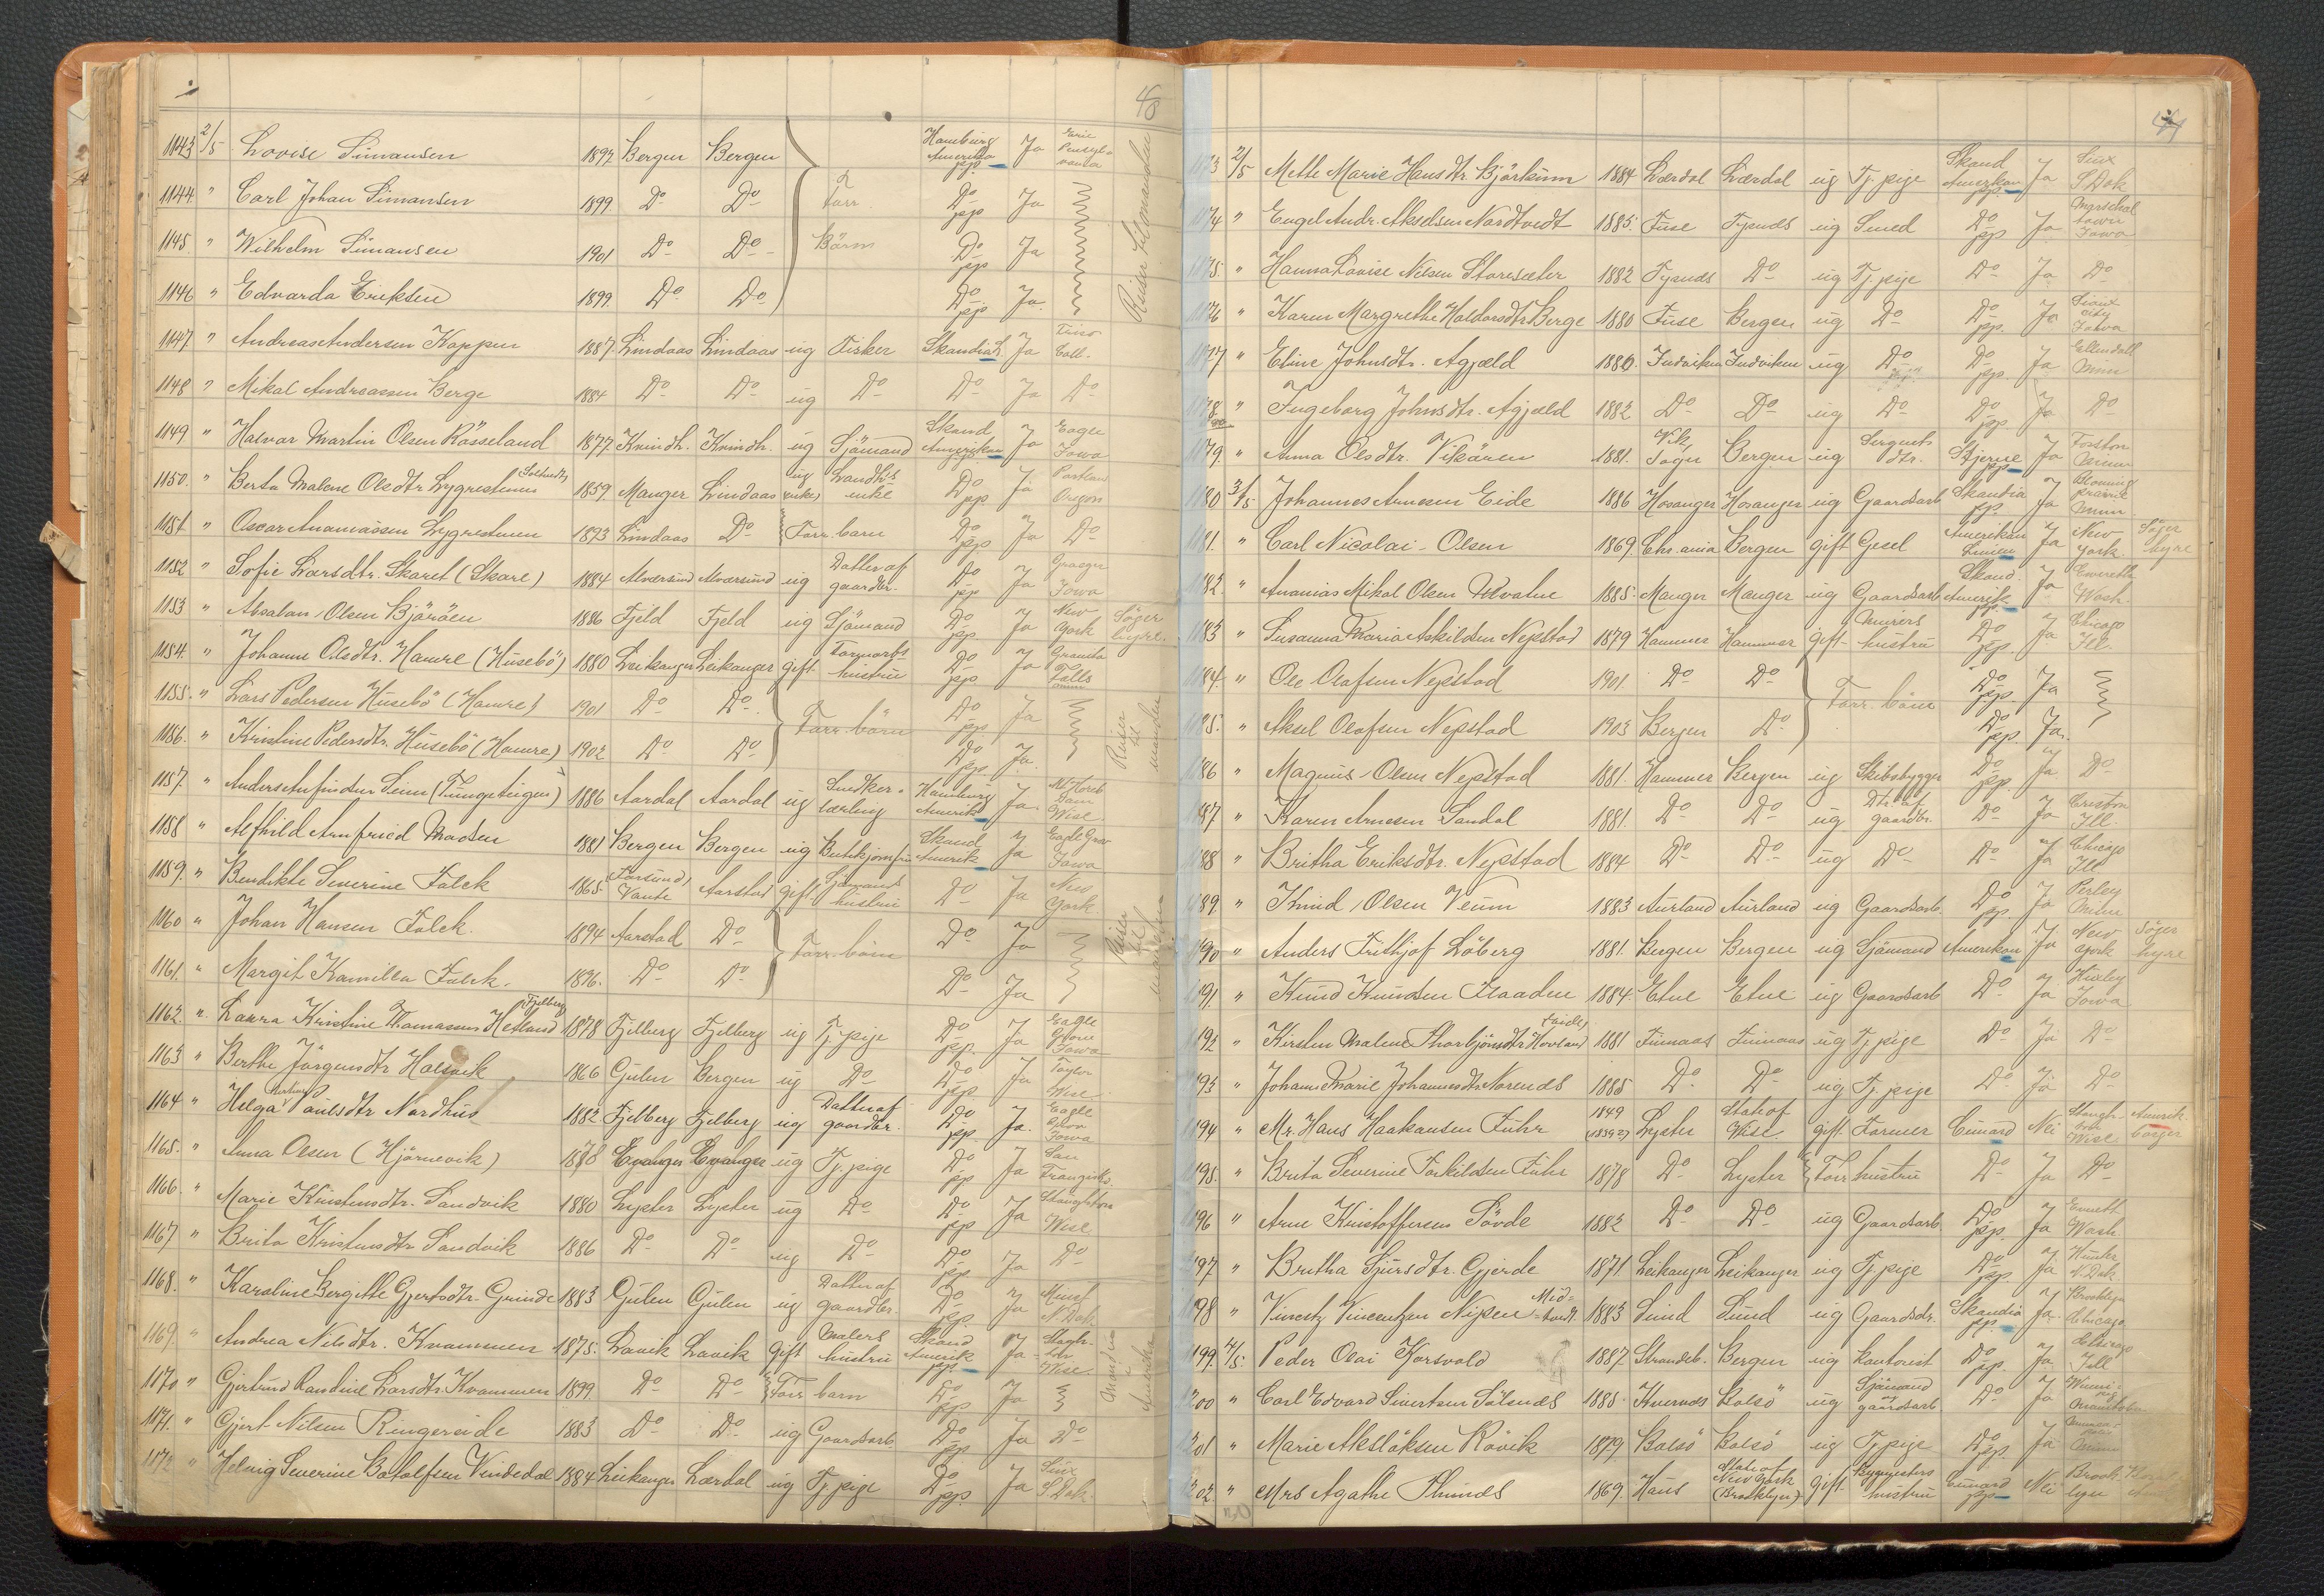 48
1143 2/5 Lovise Simonsen 1897 Bergen Bergen Hamburg Amerika pp Ja Erie Pensylvania
1144 " Carl Johan Simonsen 1899 Do Do Farr. Do pp Ja
1145 " Wilhelm Simonsen 1901 Do Do Börn Do pp Ja
1146 " Edvarda Eriksen 1899 Do Do Do pp Ja
Reiser til manden
1147 " Andreas Andersen Kappen 1887 Lindaas Lindaas ug Fisker Skandia Ja Call.
1148 " Mikal Andreassen Berge 1884 Do Do ug Do Do Ja Do
1149 " Halvor Martin Olsen Rösseland 1877 Kvindh. Kvindh. ug Sjömand Skand Amerikan Ja Eagle Iowa
1150 " Berta Malene Olsdtr Lygrestunen 1859 Manger Lindaas enke Landhs enke Do pp Ja Portland Oregon
1151 " Oscar Ananiassen Lygrestunen 1893 Lindaas Do Farr. barn Do pp Ja Do
1152 " Sofie Larsdtr. Skaret (Skare) 1884 Alversund Alversund ug Datter af gaardbr. Do pp Ja Iowa
1153 " Absalon Olsen Björöen 1886 Fjeld Fjeld ug Sjömand Do pp Ja New York Söger hyre
1154 " Johanne Olsdtr. Hamre (Husebö) 1880 Leikanger Leikanger gift hustru Do pp Ja Granite Falls Minn
1155 " Lars Pedersen Husebö (Hamre) 1901 Do Do Farr. börn Do pp Ja
1156 " Kristine Pedersdtr. Husebö (Hamre) 1902 Do Do Do pp Ja
Reiser til manden
1157 " Anders Anfindsen Seim 1886 Aardal Aardal ug Snedker-lærling Hamburg Amerika Ja Mt Horeb Dane Wisc.
1158 " Alfhild Arnfried Madsen 1881 Bergen Bergen ug Butikjomfru Skand Amerik Ja Eagle Grov Iowa
1159 " Bendikte Severine Falck 1865 Farsund Vanse Aarstad gift Sjömands hustru Do Ja New York
1160 " Johan Hansen Falck 1894 Aarstad Do Farr. börn Do Ja
1161 " Margit Kamilla Falck 1896 Do Do Do Ja
Reiser til manden
1162 " Laura Kristine Thomassen Hetland Fjelberg 1878 Fjelberg Fjelberg ug Tj. pige Do pp Ja Eagle Grove Iowa
1163 " Berthe Jörgensdtr Halsvik 1866 Gulen Bergen ug Do Do pp Ja Taylor Wisc
1164 " Helga Paulsdtr Nordhus 1882 Fjelberg Fjelberg ug Datter af gaardbr. Do pp Ja Eagle Grov Iowa
1165 " Anna Olsen (Hjörnevik) 1878 Evanger Evanger ug Tj. pige Do pp Ja San Franzisko
1166 " Marie Kristensdtr. Sandvik 1880 Lyster Lyster ug Do Do pp Ja Stoughton Wisc
1167 " Brita Kristensdtr Sandvik 1886 Do Do ug Do Do pp Ja Do
1168 " Karoline Bergitte Gjertsdtr. Grinde 1883 Gulen Gulen ug Datter af gaardbr. Do pp Ja N Dak.
1169 " Andrea Nilsdtr. Kvammen 1875 Lavik Lavik gift Malers hustru Skand Amerik pp Ja Wisc.
1170 " Gjertrud Randine Larsdtr. Kvammen 1899 Do Do Farr. barn Do pp Ja
Manden i Amerika
1171 " Gjert Nilsen Ringereide 1883 Do Do ug Gaardsarb. Do pp Ja Do
1172 " Helvig Severine Botolfsen Vindedal 1884 Leikanger Lærdal ug Tj. pige Do pp Ja Siux S. Dak
1173 2/5 Mette Marie Hansdtr. Björkum 1884 Lærdal Lærdal ug Tj. pige Skand Amerikan pp Ja Siux S Dak
1174 " Engel Andr. Akselsen Nordtvedt 1885 Fuse Tysnes ug Smed Do pp Ja Marschal town Iowa
1175 " Hanna Lovise Nilsen Storesæter 1882 Tysnes Do ug Tj. pige Do Ja Do
1176 " Karen Margrethe Haldorsdtr Berge 1880 Fuse Bergen ug Do Do pp. Ja Sioux City Iowa
1177 " Eline Johnsdtr. Agjæld 1880 Indviken Indviken ug Do Do pp. Ja Ellendall Minn
1178 " Ingeborg Johnsdtr. Agjæld 1882 Do Do ug Do Do pp. Ja Do
1179 " Anna Olsdtr. Vikören 1881 Vik Sogn Bergen ug Sergents dtr. Stjerne pp Ja Minn
1180 3/5 Johannes Arnesen Eide 1886 Hosanger Hosanger ug Gaardsarb Skandia pp. Ja Blooming prairie Minn
1181 " Carl Nicolai Olsen 1869 Chr.ania Bergen gift Gesel Amerikan Linien Ja New York Söger hyre
1182 " Ananias Mikal Olsen Utvatne 1885 Manger Manger ug Gaardsarb Skand. Amerik pp. Ja Everetta Wash.
1183 " Susanna Maria Askildsen Nepstad 1879 Hammer Hammer gift Murers hustru Do pp. Ja Chicago Ill.
1184 " Ole Olafsen Nepstad 1901 Do Do Farr. börn Do pp. Ja
1185 " Aksel Olafsen Nepstad 1903 Bergen Do Do pp. Ja
1186 " Magnus Olsen Nepstad 1881 Hammer Bergen ug Skibsbygger Do pp. Ja Do
1187 " Karen Arnesen Sandal 1881 Do Do ug Dtr. af gaardbr. Do Ja Creston Ill.
1188 " Britha Eriksdtr. Nepstad 1884 Do Do ug Do Do Ja Chicago Ill
1189 " Knud Olsen Veum 1883 Aurland Aurland ug Gaardsarb. Do pp. Ja Perley Minn
1190 " Anders Frithjof Löberg 1881 Bergen Bergen ug Sjömand Amerikan Ja New York Söger hyre
1191 " Knud Knudsen Flaaden 1884 Etne Etne ug Gaardsarb Do Ja Huxley Iowa
1192 " Kirsten Malene Thorbjörnsdtr Hovland 1881 Finnaas Finnaas ug Tj. pige Do Ja Do
1193 " Johanne Marie Johannesdtr Norenes 1885 Do Do ug Tj. pige Do Ja Do
1194 " Mr. Hans Haakansen Fuhr 1849 (1839?) Lyster Stat of Wisc. gift Farmer Cunard Nei Wisc Amerik. borger
1195 " Brita Severine Torkildsen Fuhr 1878 Do Lyster Farr. hustru Do Ja Do
1196 " Arne Kristoffersen Sövde 1882 Do Do ug Gaardsarb Do pp. Ja Wash
1197 " Britha Sjursdtr. Gjerde 1871 Leikanger Leikanger ug Tj. pige Do pp. Ja N. Dak
1198 " Vincentz Vincentzen Nipen Midtvedt 1883 Sund Sund ug Gaardsdr. Skandia pp. Ja Brooklyn Chicago
1199 4/5 Peder Olai Korsvold 1887 Strandeb. Bergen ug Kontorist Do pp. Ja Chicago Ill
1200 " Carl Edvard Sivertsen Sölsnes 1885 Kvernes Bolsö ug Sjömand gaardsarb Do Ja Winnipeg Manitoba
1201 " Marie Aksläksen Rövik 1879 Bolsö Bolsö ug Tj. pige Do pp. Ja Minn
1202 " Mrs Agathe Thunes 1869 Haus Stat of New York (Brooklyn) gift Bygmesters hustru Cunard pp Nei Brooklyn